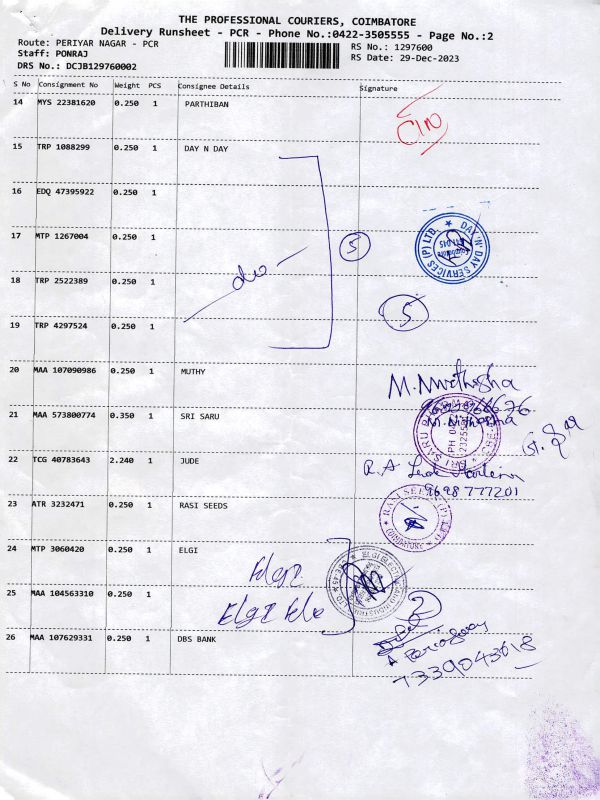 THE PROFESSIONAL COURIERS, COIMBATORE
Delivery Runsheet - PCR - Phone No.:0422-3505555 - Page No.:2
Route: PERIYAR NAGAR - PCR
RS No.: 1297600
Staff: PONRAJ
RS Date: 29-Dec-2023
DRS No.: DCJB129760002
S No Consignment No Weight PCS Consignee Details Signature
14 MYS 22381620 0.250 1 PARTHIBAN
15 TRP 1088299 0.250 1 DAY N DAY
16 EDQ 47395922 0.250 1
17 MTP 1267004 0.250 1
5
DAY 'N' DAY SERVICES (P) LTD.
18 TRP 2522389 0.250 1
do
5
19 TRP 4297524 0.250 1
20 MAA 107090986 0.250 1 MUTHY
21 MAA 573800774 0.350 1 SRI SARU
22 TCG 40783643 2.240 1 JUDE
9698 777201
23 ATR 3232471 0.250 1 RASI SEEDS
RASI SEEDS (P) LTD
COIMBATORE
24 MTP 3060420 0.250 1 ELGI
Elgi
25 MAA 104563310 0.250 1
Elgi
2
26 MAA 107629331 0.250 1 DBS BANK
7339043618